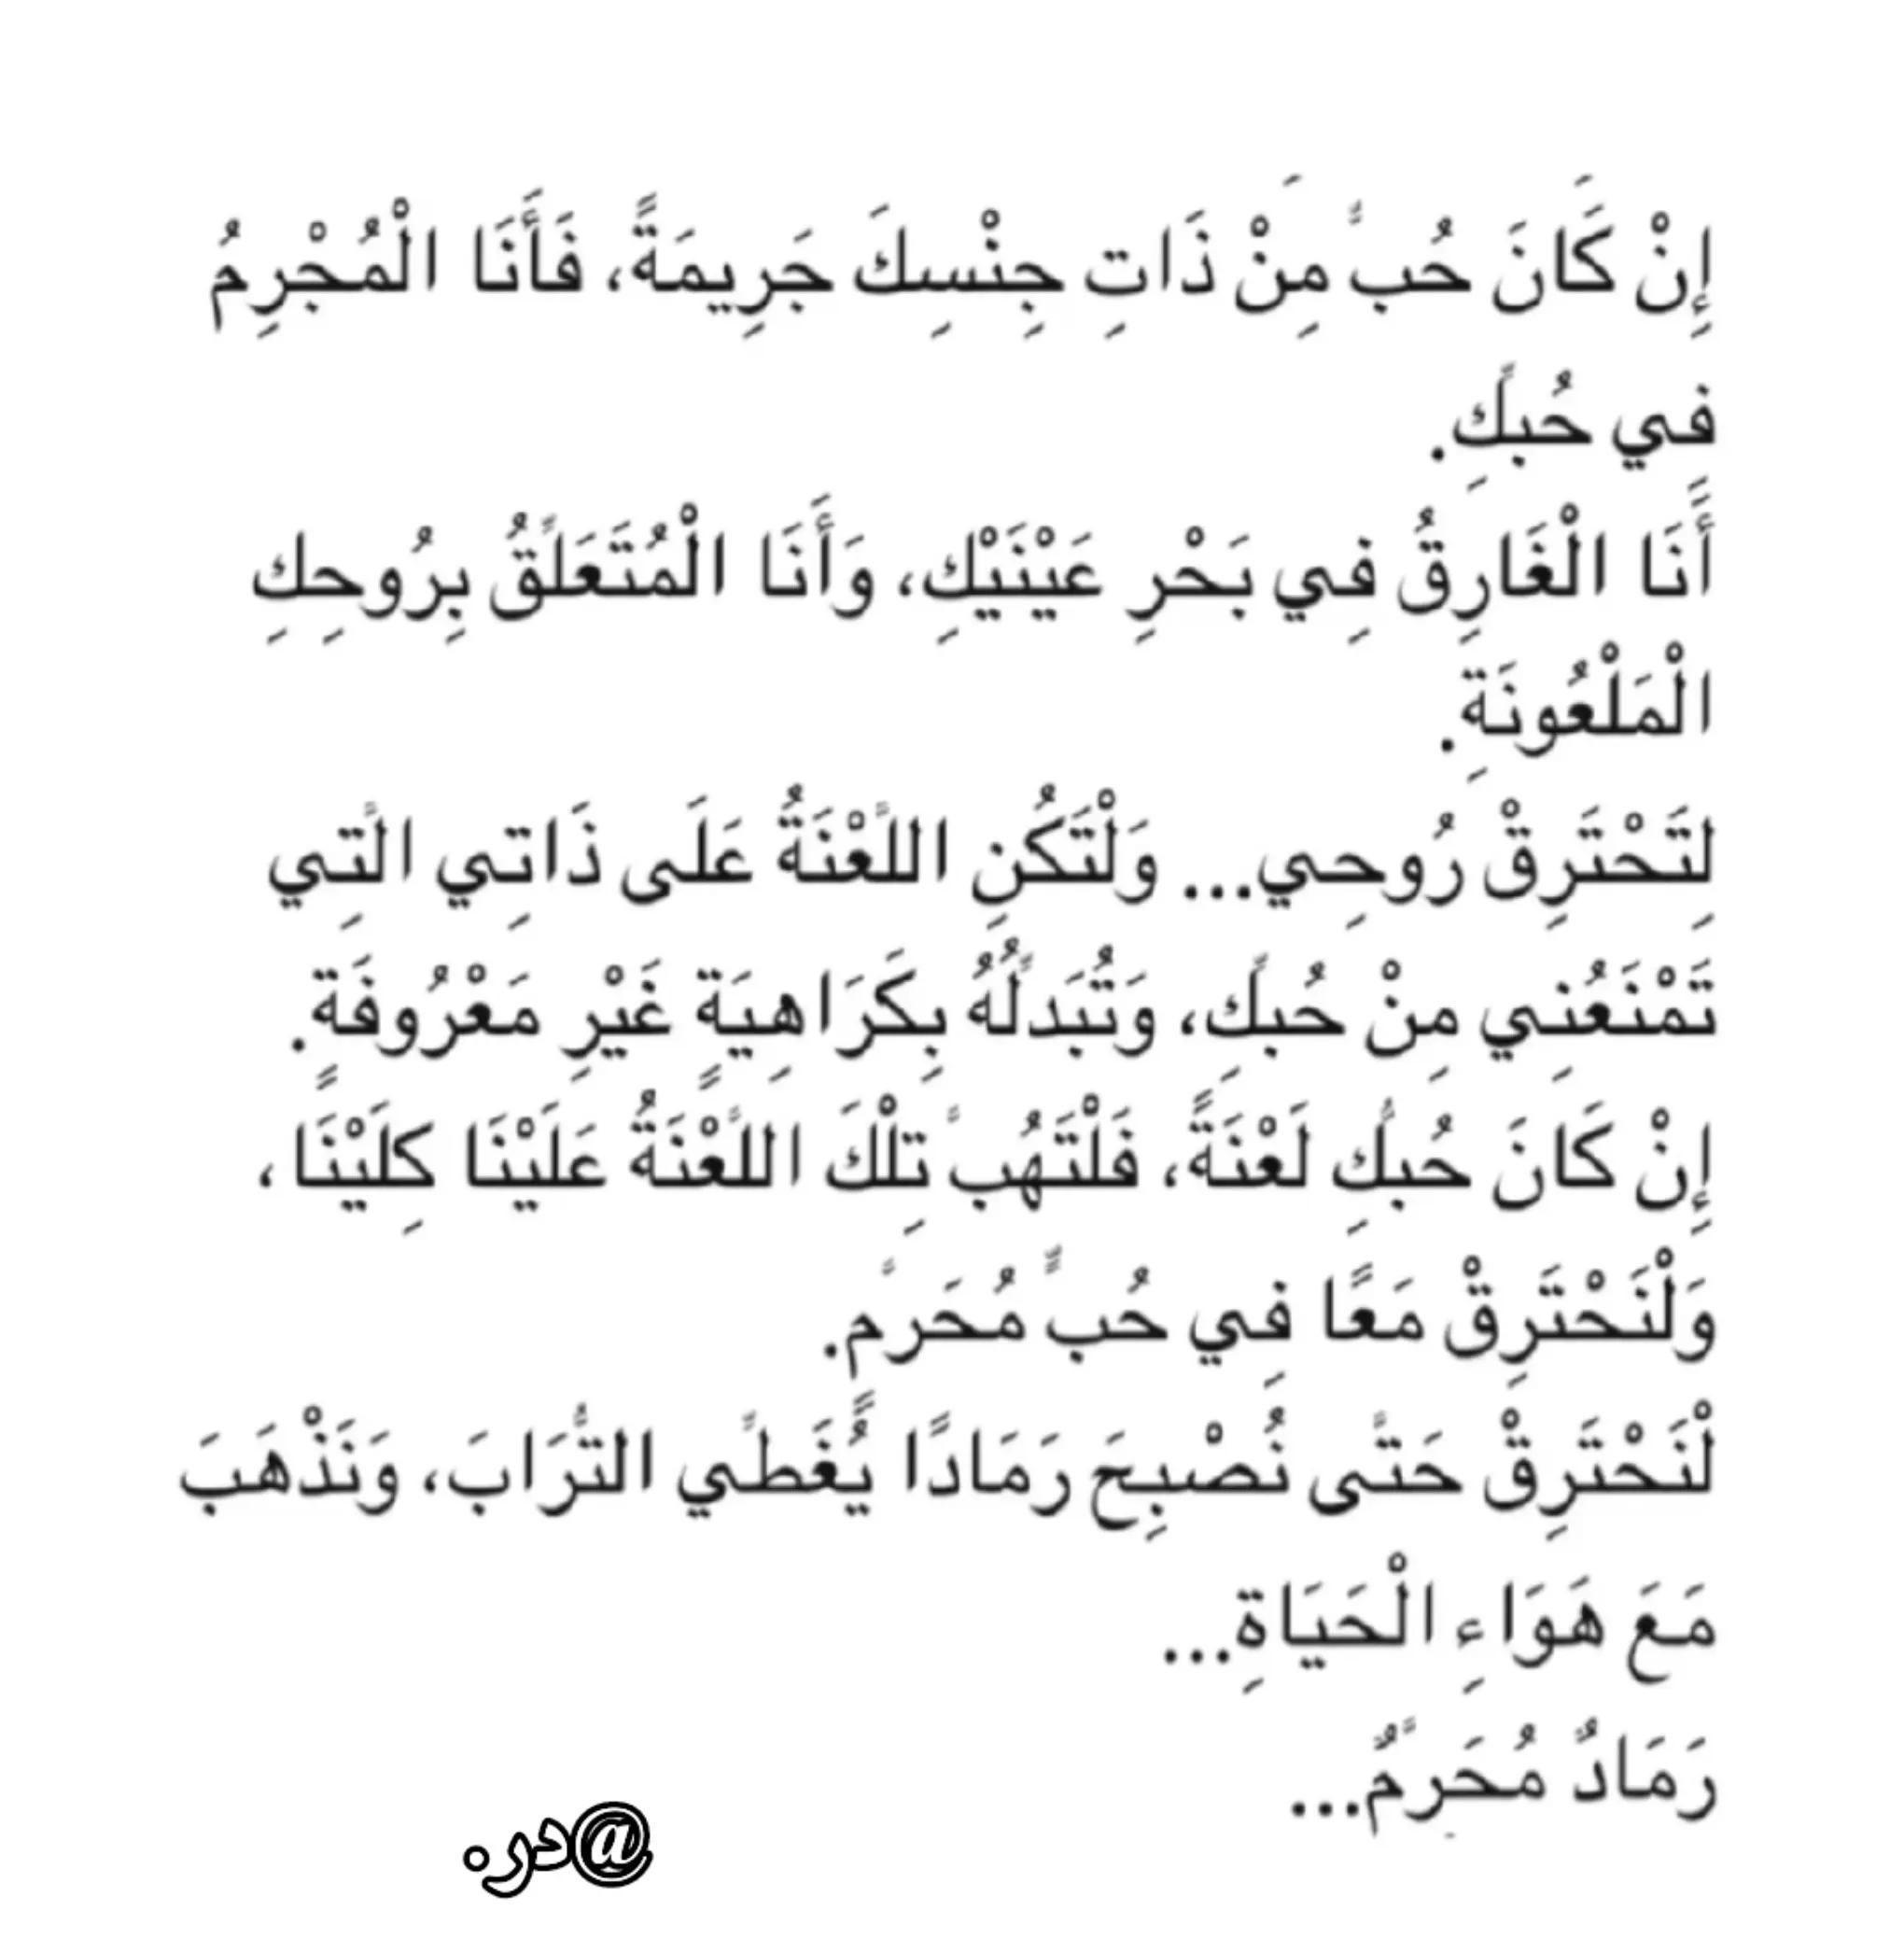 إِنْ كَانَ حُبُّ مَِنْ ذَاتِ جِنْسِكَ جَرِيمَةً، فَأَنَا الْمُجْرِمُ
فِي حُبِّكِ.
أَنَا الْغَارِقُ فِي بَحْرِ عَيْنَيْكِ، وَأَنَا الْمُتَعَلِّقُ بِرُوحِكِ
الْمَلْعُونَةِ.
لِتَحْتَرِقْ رُوحِي... وَلْتَكُنِ اللَّعْنَةُ عَلَى ذَاتِي الَّتِي
تَمْنَعُنِي مِنْ حُبِّكِ، وَتُبَدِّلُهُ بِكَرَاهِيَةٍ غَيْرِ مَعْرُوفَةٍ.
إِنْ كَانَ حُبُّكِ لَعْنَةً، فَلْتَهُبَّ تِلْكَ اللَّعْنَةُ عَلَيْنَا كِلَيْنَا،
وَلْنَحْتَرِقْ مَعًا فِي حُبٍّ مُحَرَّمٍ.
لْنَحْتَرِقْ حَتَّى نُصْبِحَ رَمَادًا يُغَطِّي التُّرَابَ، وَنَذْهَبَ
مَعَ هَوَاءِ الْحَيَاةِ...
رَمَادٌ مُحَرَّمٌ...
@در.